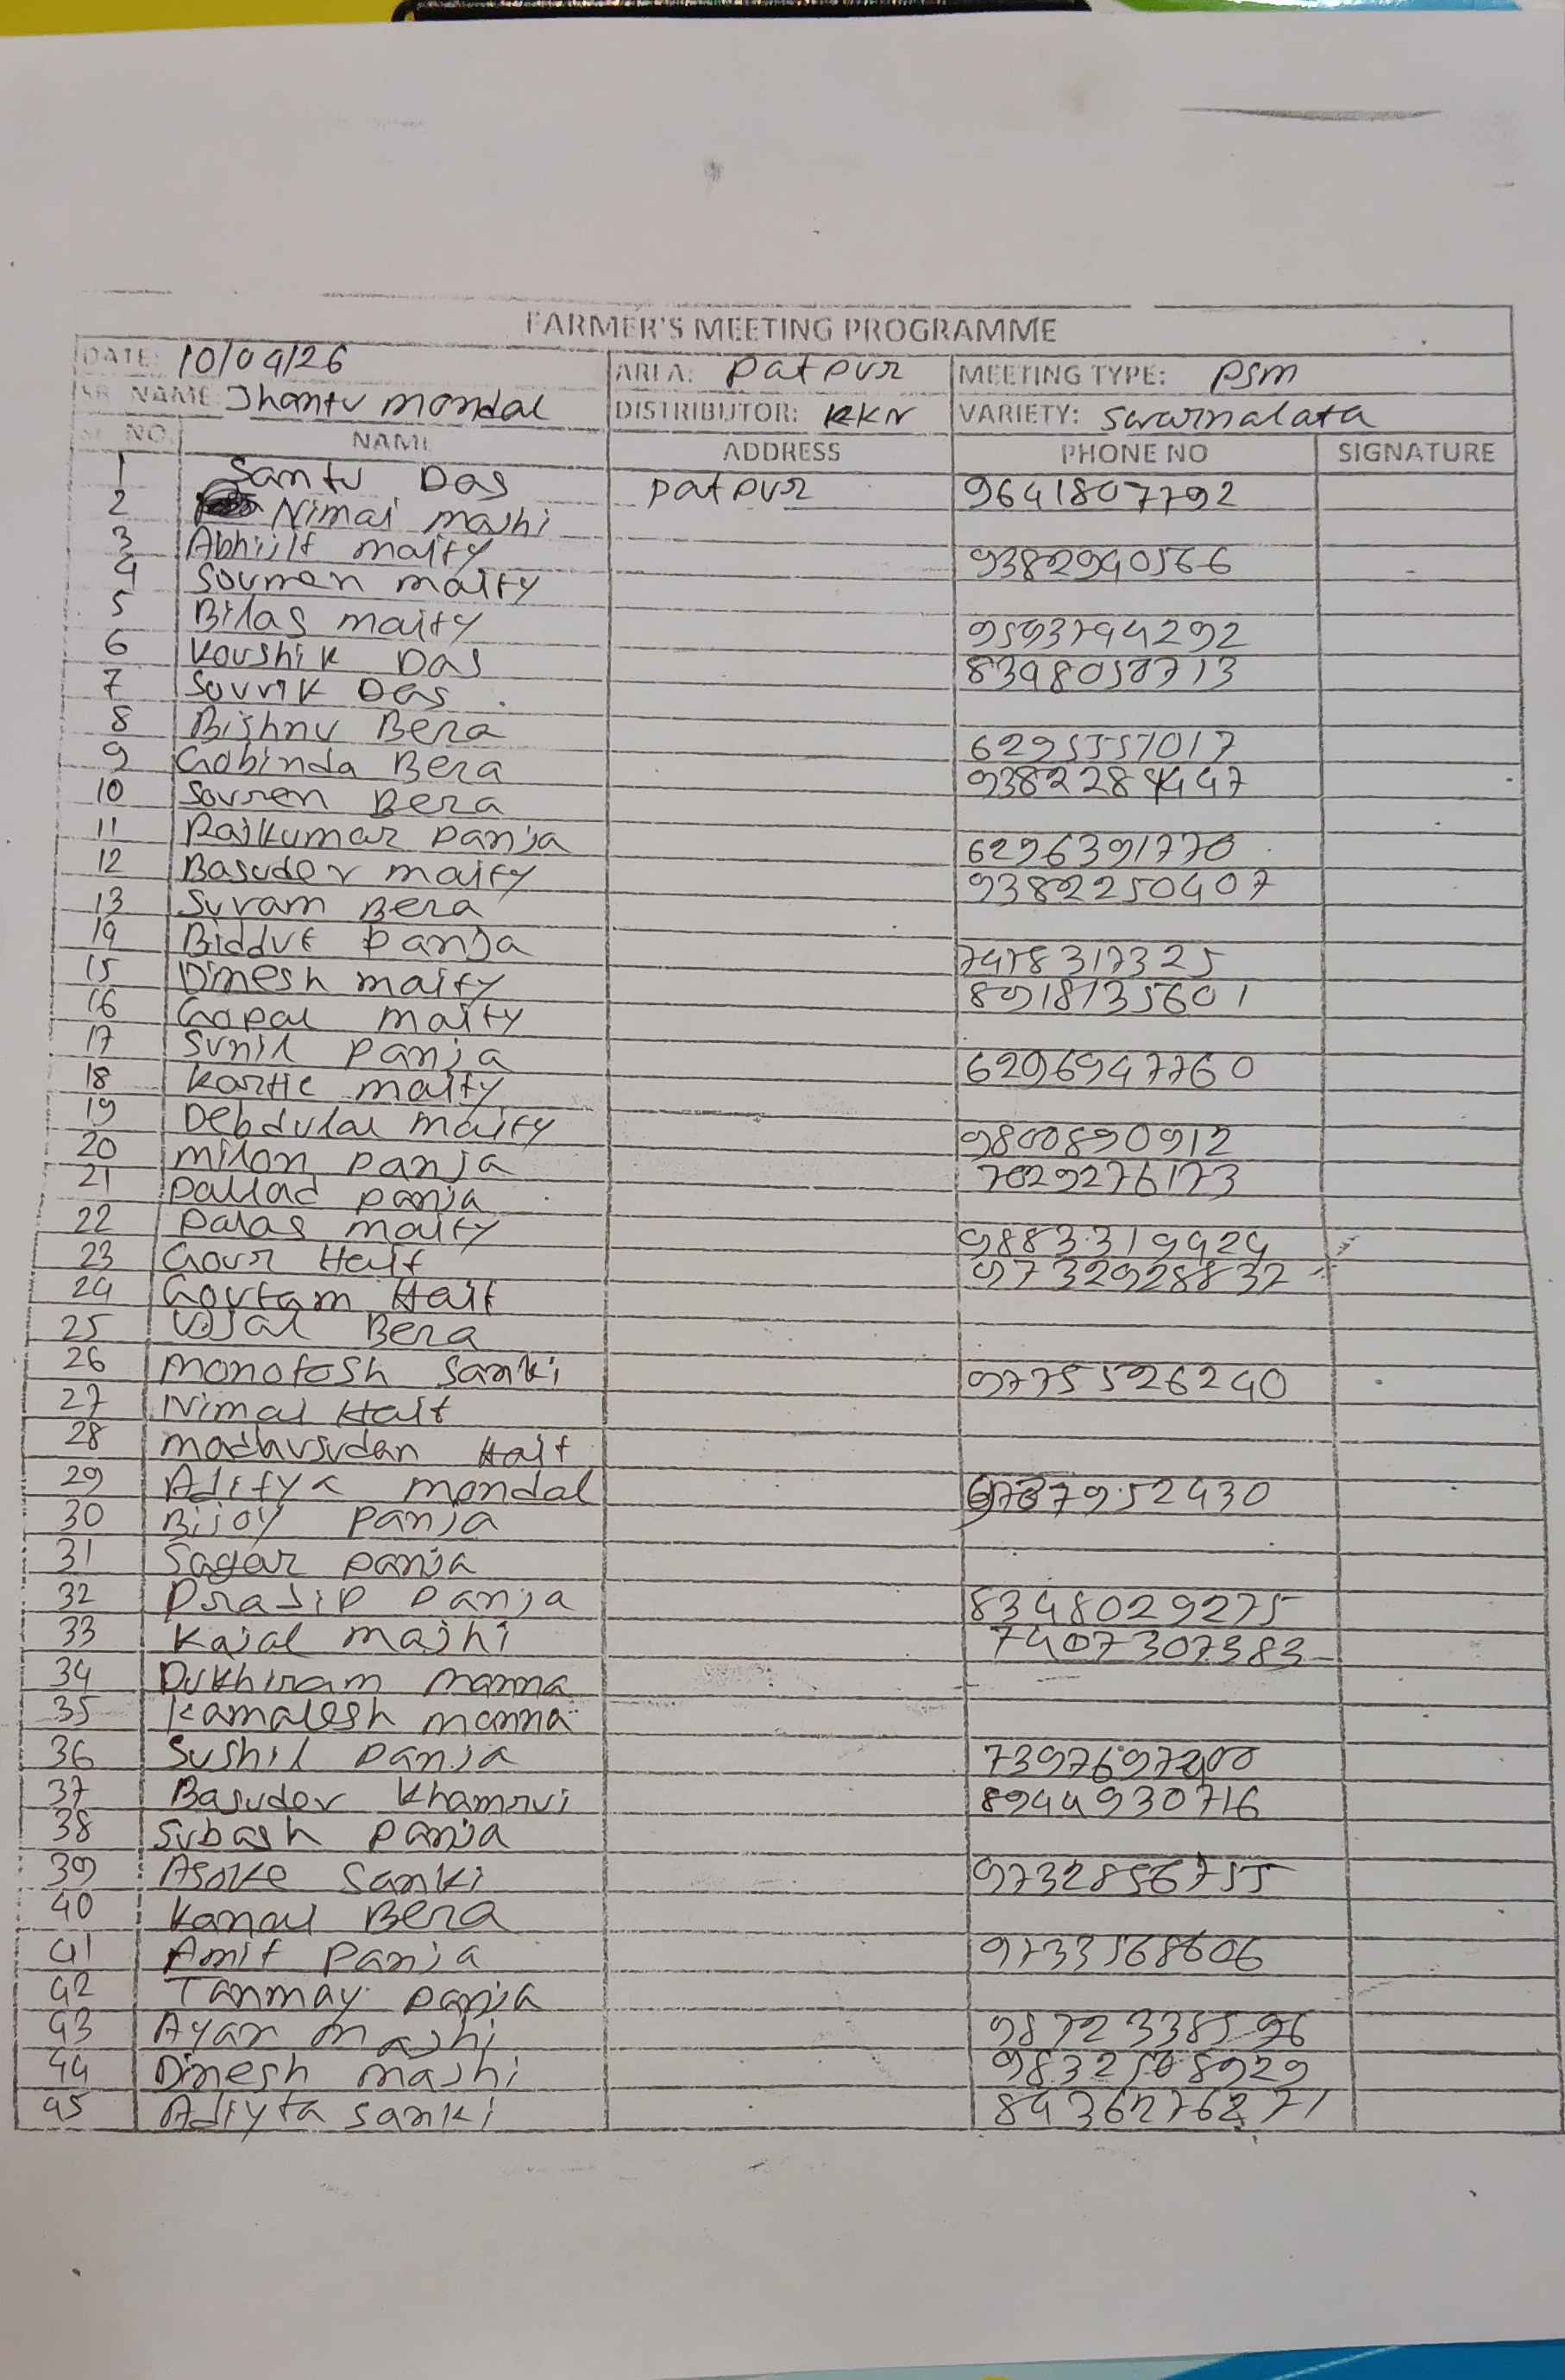 FARMER'S MEETING PROGRAMME
DATE: 10/04/26 AREA: Patpur MEETING TYPE: PSM
SR. NAME: Jhantu mondal DISTRIBUTOR: KKN VARIETY: Swarnalata
SL NO. NAME ADDRESS PHONE NO SIGNATURE
1 Santu Das Patpur 9641807792
2 Nimai majhi
3 Abhijit maity 9382940566
4 Soumen maity
5 Bilas maity 9593794292
6 Koushik Das 8398050713
7 Souvik Das
8 Bishnu Bera 6295557017
9 Gobinda Bera 9382284447
10 Sovren Bera
11 Rajkumar Panja 6296391770
12 Basudev maity 9382250407
13 Suram Bera
14 Biddut Panja 7478317325
15 Dinesh maity 8918135601
16 Gopal maity
17 Sunil Panja 6296947760
18 Kartic maity
19 Debdulal maity 9800890912
20 milon Panja 7029276173
21 Pallad Panja
22 Palas maity 9883319424
23 Gour Hait 9732928832
24 Goutam Hait
25 Ujjal Bera
26 monotosh Sanki 9775526240
27 Nimai Hait
28 madhusudan Hait
29 Aditya mondal 952430
30 Bijoy Panja
31 Sagar Panja
32 Prajip Panja 8348029275
33 Kajal majhi 7407307383
34 Dukhiram manna
35 Kamalesh manna
36 Sushil Panja
37 Basudev Khamrui 8944930716
38 Subash Panja
39 Asoke Sanki 9732856755
40 Kanai Bera
41 Amit Panja 9733568606
42 Tanmay Panja
43 Ayan majhi
44 Dinesh majhi
45 Adiyta Sanki